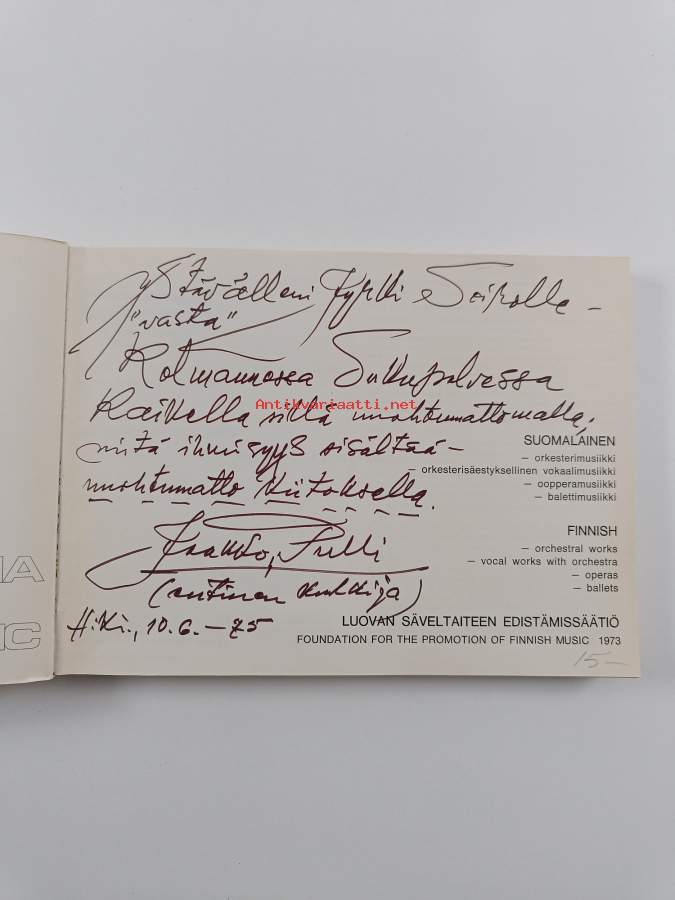 Ystävälleni Jyrki
"vasta"
Kolmannossa Sukupolvessa
Kaikella sillä
Antikvariaatti.net
mitä ihmisyys sisältää –
kiitoksella.
Jaakko,
(entinen kulkija)
H:ki., 10.6. – 75
SUOMALAINEN
– orkesterimusiikki
– orkesterisäestyksellinen vokaalimusiikki
– oopperamusiikki
– balettimusiikki
FINNISH
– orchestral works
– vocal works with orchestra
– operas
– ballets
LUOVAN SÄVELTAITEEN EDISTÄMISSÄÄTIÖ
FOUNDATION FOR THE PROMOTION OF FINNISH MUSIC 1973
15–
IA
IC